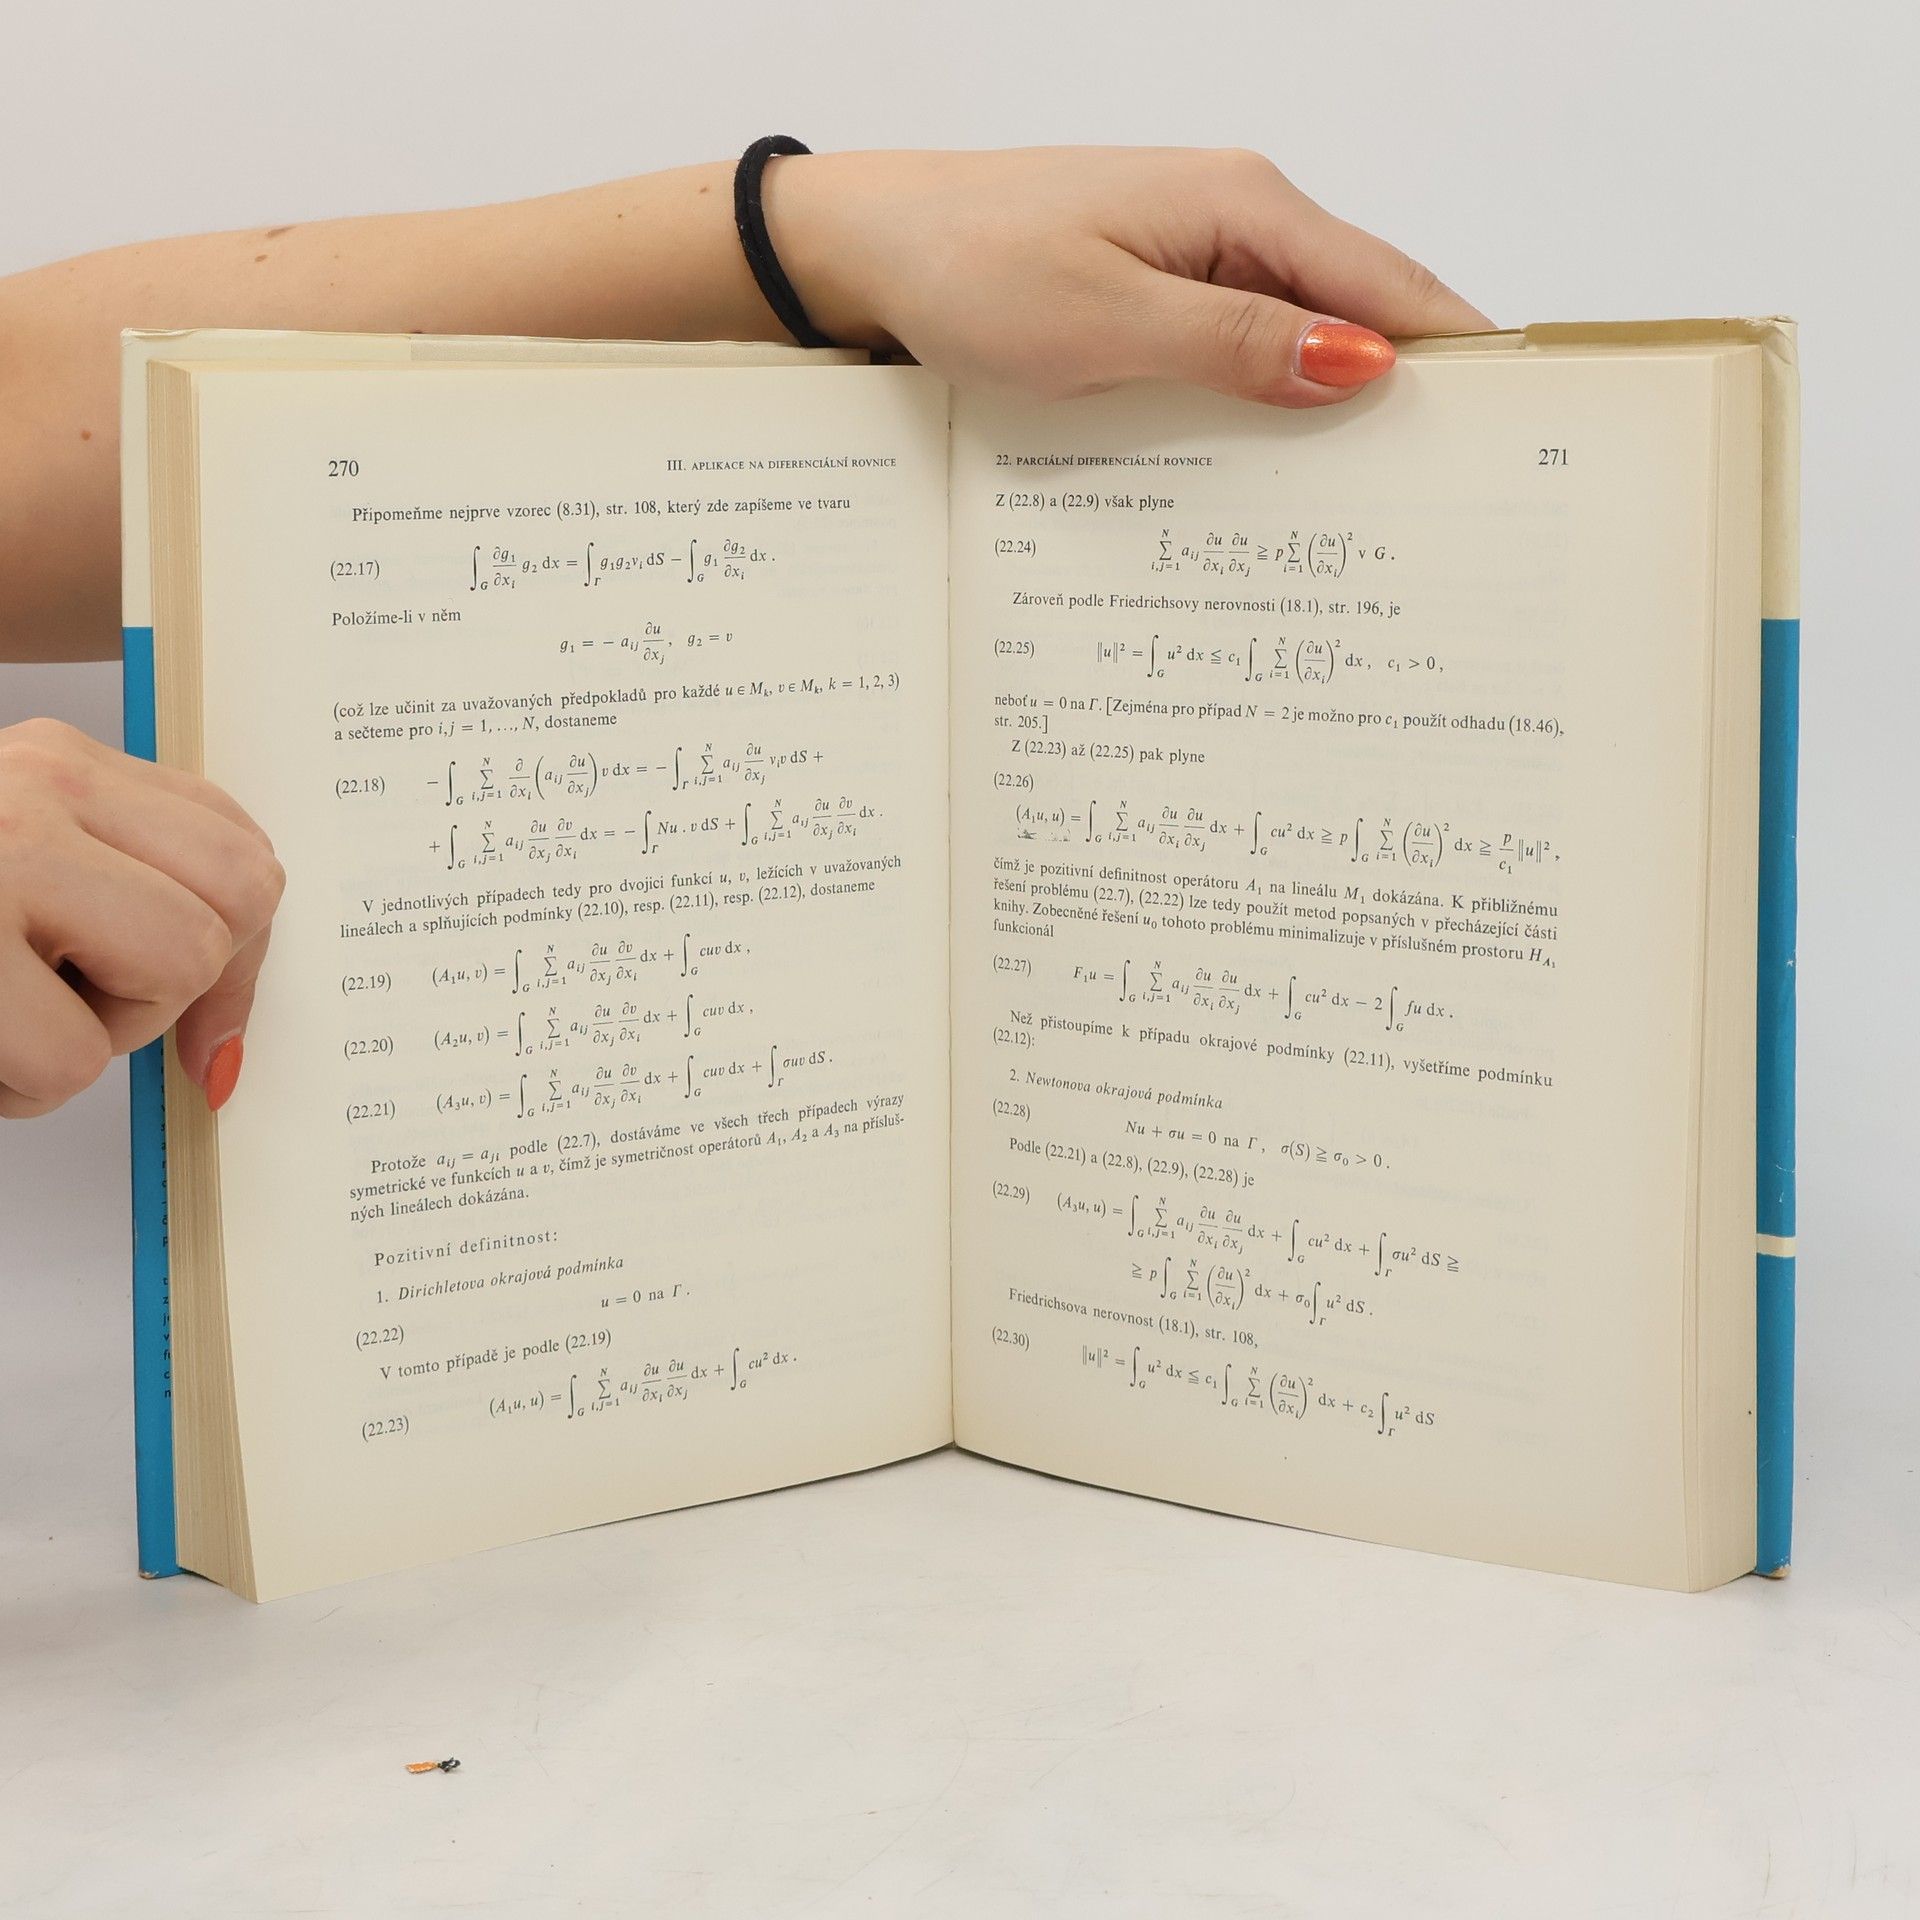 270
III. APLIKACE NA DIFERENCIÁLNÍ ROVNICE
Připomeňme nejprve vzorec (8.31), str. 108, který zde zapíšeme ve tvaru
(22.17) ∫_G ∂g₁/∂x_i g₂ dx = ∫_Γ g₁g₂ν_i dS − ∫_G g₁ ∂g₂/∂x_i dx .
Položíme-li v něm
g₁ = − a_ij ∂u/∂x_j , g₂ = v
(což lze učinit za uvažovaných předpokladů pro každé u ∈ M_k, v ∈ M_k, k = 1, 2, 3)
a sečteme pro i, j = 1, ..., N, dostaneme
(22.18) − ∫_G ∑_{i,j=1}^N ∂/∂x_i (a_ij ∂u/∂x_j) v dx = − ∫_Γ ∑_{i,j=1}^N a_ij ∂u/∂x_j ν_i v dS +
+ ∫_G ∑_{i,j=1}^N a_ij ∂u/∂x_j ∂v/∂x_i dx = − ∫_Γ Nu . v dS + ∫_G ∑_{i,j=1}^N a_ij ∂u/∂x_j ∂v/∂x_i dx .
V jednotlivých případech tedy pro dvojici funkcí u, v, ležících v uvažovaných
lineálech a splňujících podmínky (22.10), resp. (22.11), resp. (22.12), dostaneme
(22.19) (A₁u, v) = ∫_G ∑_{i,j=1}^N a_ij ∂u/∂x_j ∂v/∂x_i dx + ∫_G cuv dx ,
(22.20) (A₂u, v) = ∫_G ∑_{i,j=1}^N a_ij ∂u/∂x_j ∂v/∂x_i dx + ∫_G cuv dx ,
(22.21) (A₃u, v) = ∫_G ∑_{i,j=1}^N a_ij ∂u/∂x_j ∂v/∂x_i dx + ∫_G cuv dx + ∫_Γ σuv dS .
Protože a_ij = a_ji podle (22.7), dostáváme ve všech třech případech výrazy
symetrické ve funkcích u a v, čímž je symetričnost operátorů A₁, A₂ a A₃ na přísluš-
ných lineálech dokázána.
Pozitivní definitnost:
1. Dirichletova okrajová podmínka
(22.22) u = 0 na Γ .
V tomto případě je podle (22.19)
(22.23) (A₁u, u) = ∫_G ∑_{i,j=1}^N a_ij ∂u/∂x_i ∂u/∂x_j dx + ∫_G cu² dx .
22. PARCIÁLNÍ DIFERENCIÁLNÍ ROVNICE
271
Z (22.8) a (22.9) však plyne
(22.24) ∑_{i,j=1}^N a_ij ∂u/∂x_i ∂u/∂x_j ≧ p ∑_{i=1}^N (∂u/∂x_i)² v G .
Zároveň podle Friedrichsovy nerovnosti (18.1), str. 196, je
(22.25) ‖u‖² = ∫_G u² dx ≦ c₁ ∫_G ∑_{i=1}^N (∂u/∂x_i)² dx , c₁ > 0 ,
neboť u = 0 na Γ. [Zejména pro případ N = 2 je možno pro c₁ použít odhadu (18.46),
str. 205.]
Z (22.23) až (22.25) pak plyne
(22.26)
(A₁u, u) = ∫_G ∑_{i,j=1}^N a_ij ∂u/∂x_i ∂u/∂x_j dx + ∫_G cu² dx ≧ p ∫_G ∑_{i=1}^N (∂u/∂x_i)² dx ≧ p/c₁ ‖u‖² ,
čímž je pozitivní definitnost operátoru A₁ na lineálu M₁ dokázána. K přibližnému
řešení problému (22.7), (22.22) lze tedy použít metod popsaných v přecházející části
knihy. Zobecněné řešení u₀ tohoto problému minimalizuje v příslušném prostoru H_{A₁}
funkcionál
(22.27) F₁u = ∫_G ∑_{i,j=1}^N a_ij ∂u/∂x_i ∂u/∂x_j dx + ∫_G cu² dx − 2 ∫_G fu dx .
Než přistoupíme k případu okrajové podmínky (22.11), vyšetříme podmínku
(22.12):
2. Newtonova okrajová podmínka
(22.28) Nu + σu = 0 na Γ , σ(S) ≧ σ₀ > 0 .
Podle (22.21) a (22.8), (22.9), (22.28) je
(22.29) (A₃u, u) = ∫_G ∑_{i,j=1}^N a_ij ∂u/∂x_i ∂u/∂x_j dx + ∫_G cu² dx + ∫_Γ σu² dS ≧
≧ p ∫_G ∑_{i=1}^N (∂u/∂x_i)² dx + σ₀ ∫_Γ u² dS .
Friedrichsova nerovnost (18.1), str. 108,
(22.30) ‖u‖² = ∫_G u² dx ≦ c₁ ∫_G ∑_{i=1}^N (∂u/∂x_i)² dx + c₂ ∫_Γ u² dS